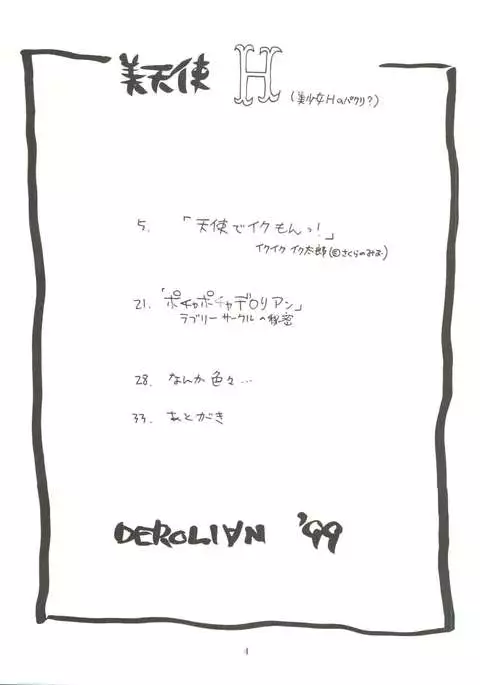 美天使 H
(美少女Hのパクリ?)
5. 「天使でイクもんっ!」
イクイクイク太郎(@さくらのみお)
21. 「ポチャポチャデロリアン」
ラブリーサークルの秘密
28. なんか色々…
33. あとがき
DEROLIAN '99
4